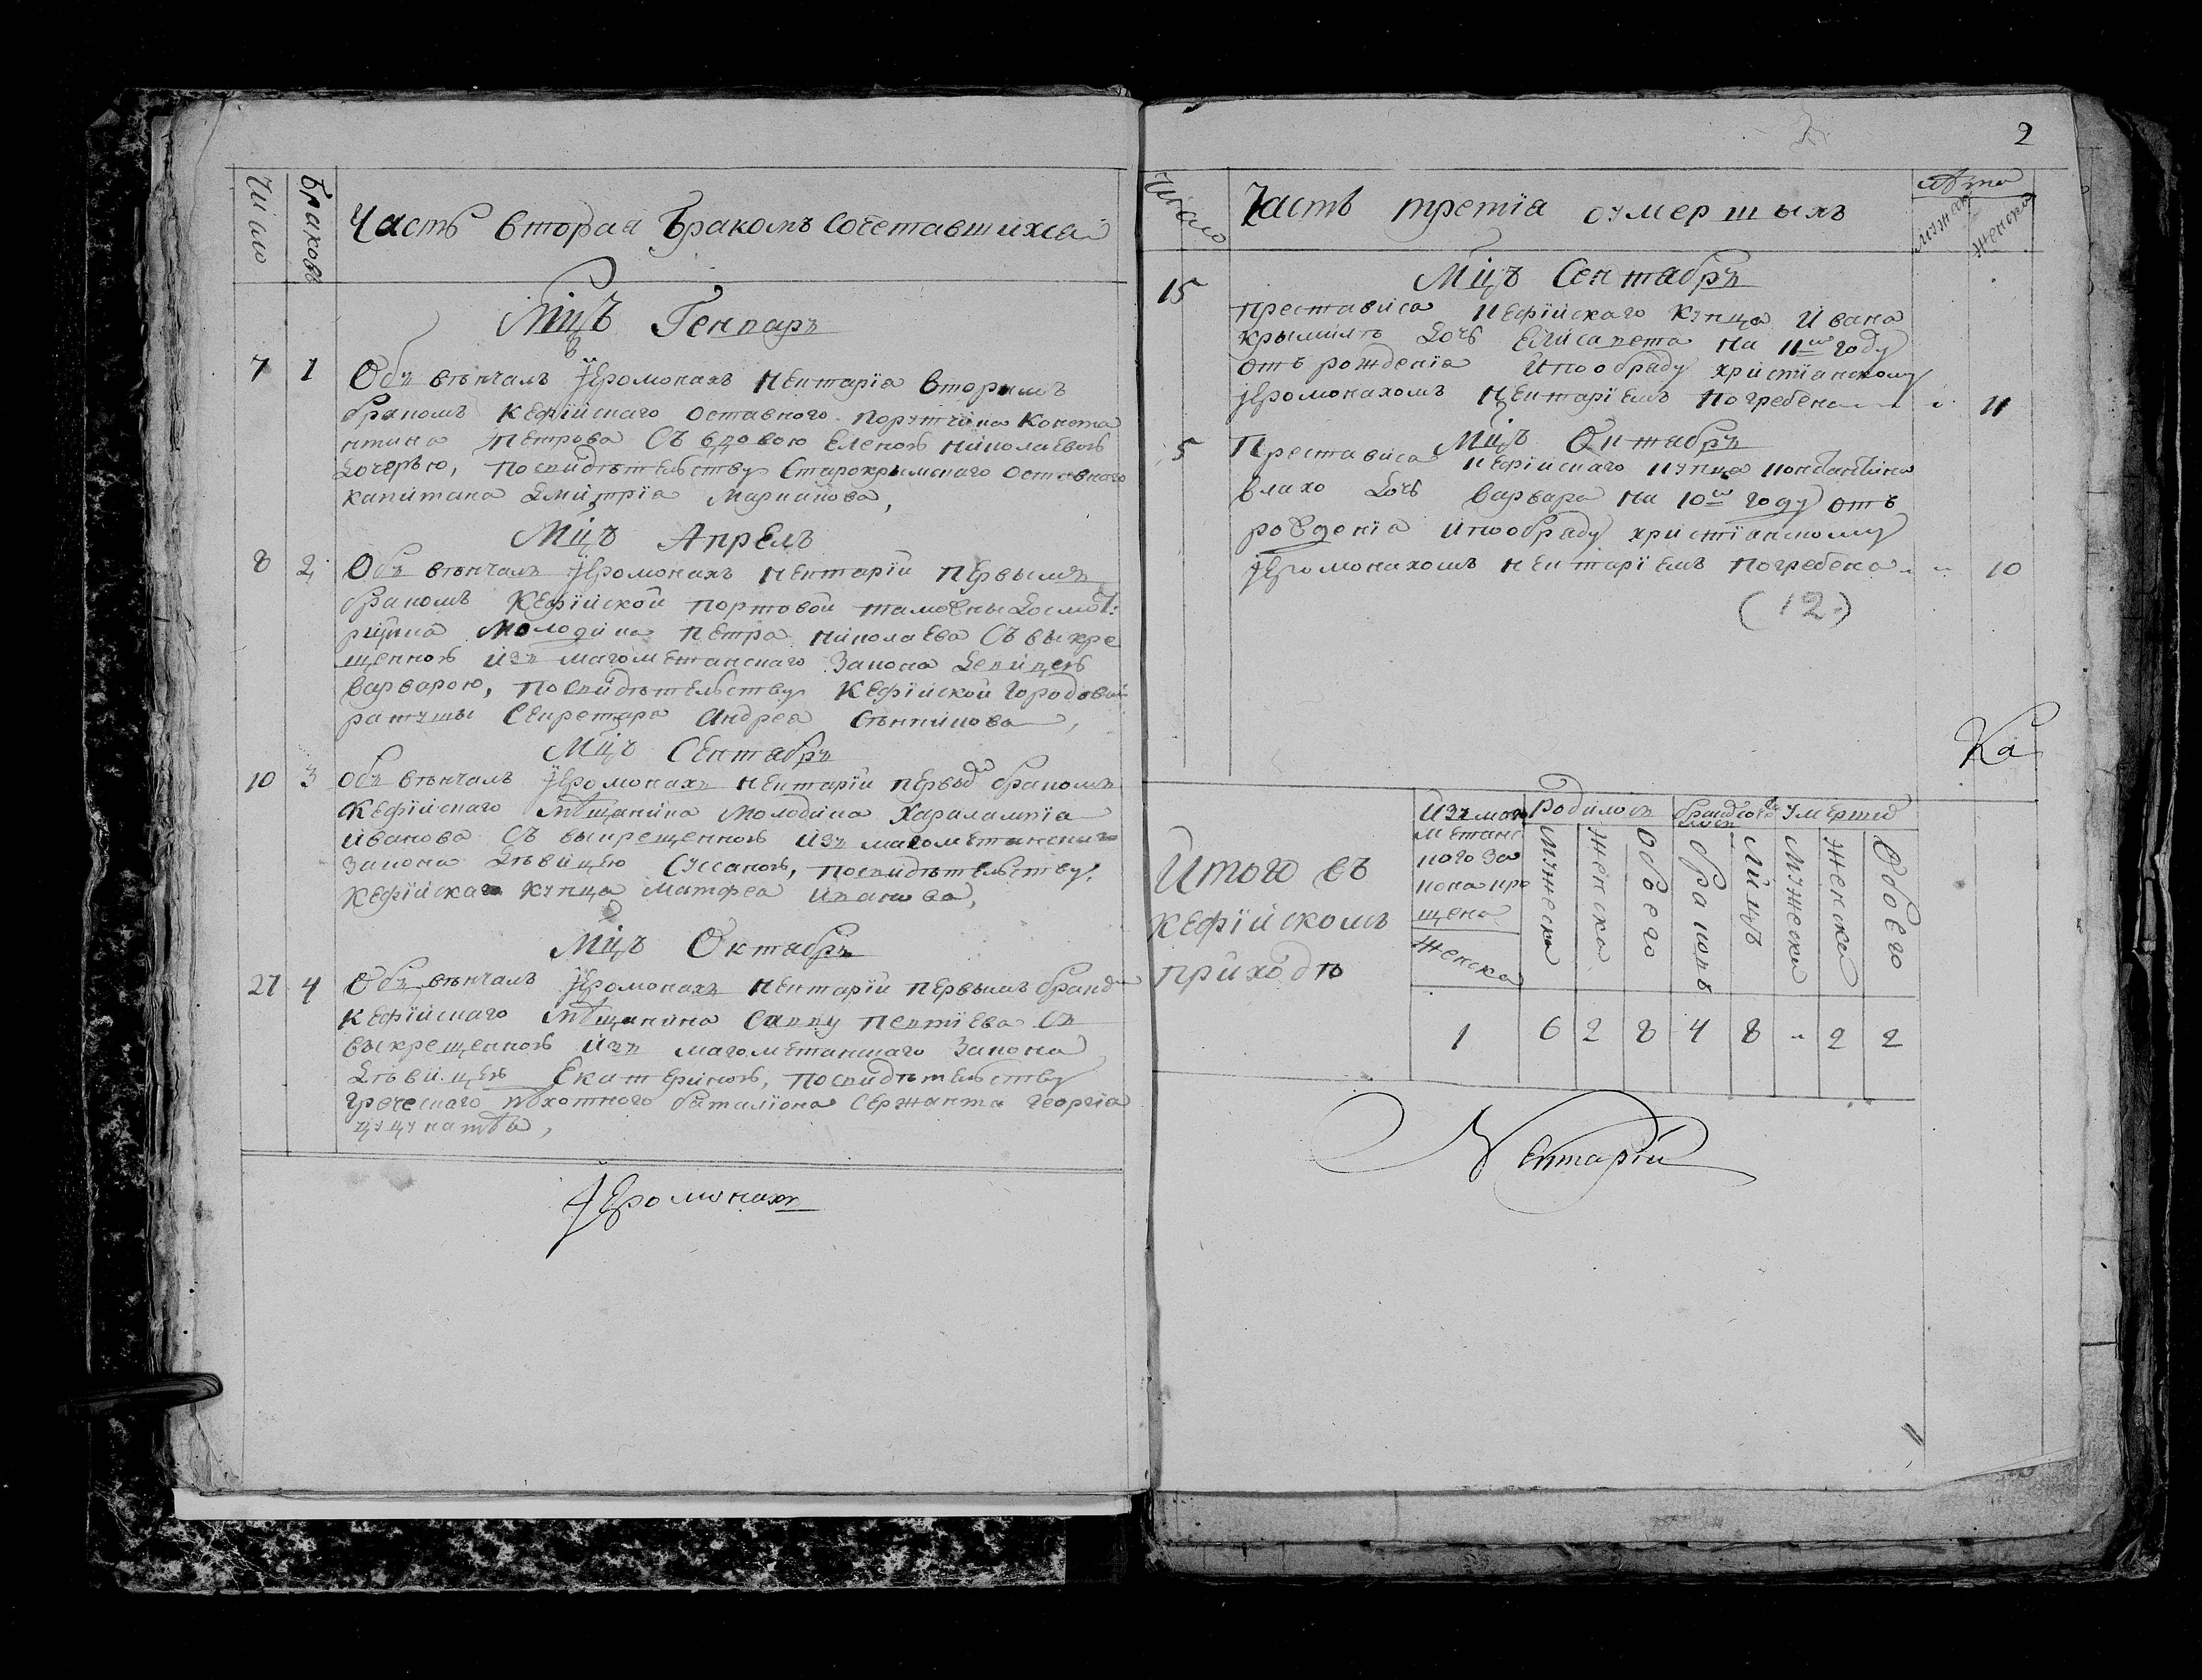 Число
Браковъ
Часть вторая Бракомъ Сочетавшихся
Мцъ Генваръ
7 1 Обвѣнчалъ Іеромонахъ Нектаріа вторимъ
бракомъ Кефійскаго оставного порутчика Конста
нтина Петрова Съ вдовою Еленою Николаевою
дочерью, посвидѣтельству Старокрымскаго оставного
капитана Дмитріа
Мцъ Апрелъ
8 2 Обвѣнчалъ Іеромонахъ Нектарій первымъ
бракомъ Кефійской портовой таможны досмот:
рщика Молодика Петра николаева Съ выкре
щенною изъ магометанскаго Закона девицею
Варварою, посвидѣтельству Кефійской Городовой
ратушы Секретара Андреа
Мцъ Сентабръ
10 3 Обвѣнчалъ Іеромонахъ Нектарій первымъ бракомъ
Кефійскаго мѣщанина молодика Харалампіа
Иванова Съ выкрещенною изъ магометанскаго
Закона дѣвицею Суссаною, посвидѣтельству
Кефійскаго купца Матфеа Иванова,
Мцъ Октабръ
27 4 Обвѣнчалъ Іеромонахъ Нектарій первымъ бракомъ
Кефійскаго мѣщанина Савву Съ
выкрещенною изъ магометанскаго Закона
дѣвицею Екатериною, посвидѣтельству
Греческаго пѣхотного баталіона Сержанта Георгіа
Іеромонахъ
2
Число
Часть третіа оумершыхъ
лѣта
мужеска
женска
Мцъ Сентабръ
15 престависа Кефійскаго Купца Ивана
дочь Елисавета на 11м году
отъ рожденіа ипообраду христіанскому
Іеромонахомъ Нектаріемъ погребена 11
Мцъ Октабръ
5 Престависа Кефійскаго купца Константина
влахо дочь варвара на 10м году отъ
рожденіа ипообраду христіанскому
Іеромонахомъ Нектаріемъ погребена 10
(12)
Ка
Итого въ
Кефійскомъ
приходѣ
Изъ маго
метанс
кого За
кона кре
щена
Женска
Родилось
Умерше
мужеска
женска
Обоего
браковъ
Лицъ
мужеска
женска
Обоего
1 6 2 8 4 8 " 2 2
Нектарій